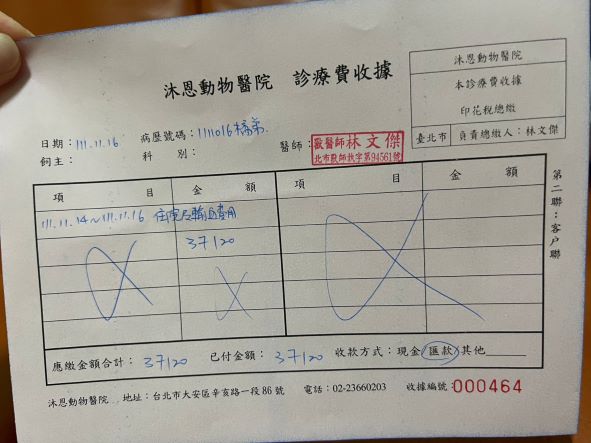 沐恩動物醫院 診療費收據
沐恩動物醫院
本診療費收據
印花稅總繳
臺北市 負責總繳人：林文傑
日期：111.11.16 病歷號碼：1111016 醫師：獸醫師林文傑
北市獸師執字第94561號
飼主： 科別：
項目 金額 項目 金額
111.11.14~111.11.16 住院及輸血費用
37120
第二聯：客戶聯
應繳金額合計：37120 已付金額：37120 收款方式：現金 匯款 其他
沐恩動物醫院 地址：台北市大安區辛亥路一段86號 電話：02-23660203 收據編號：000464